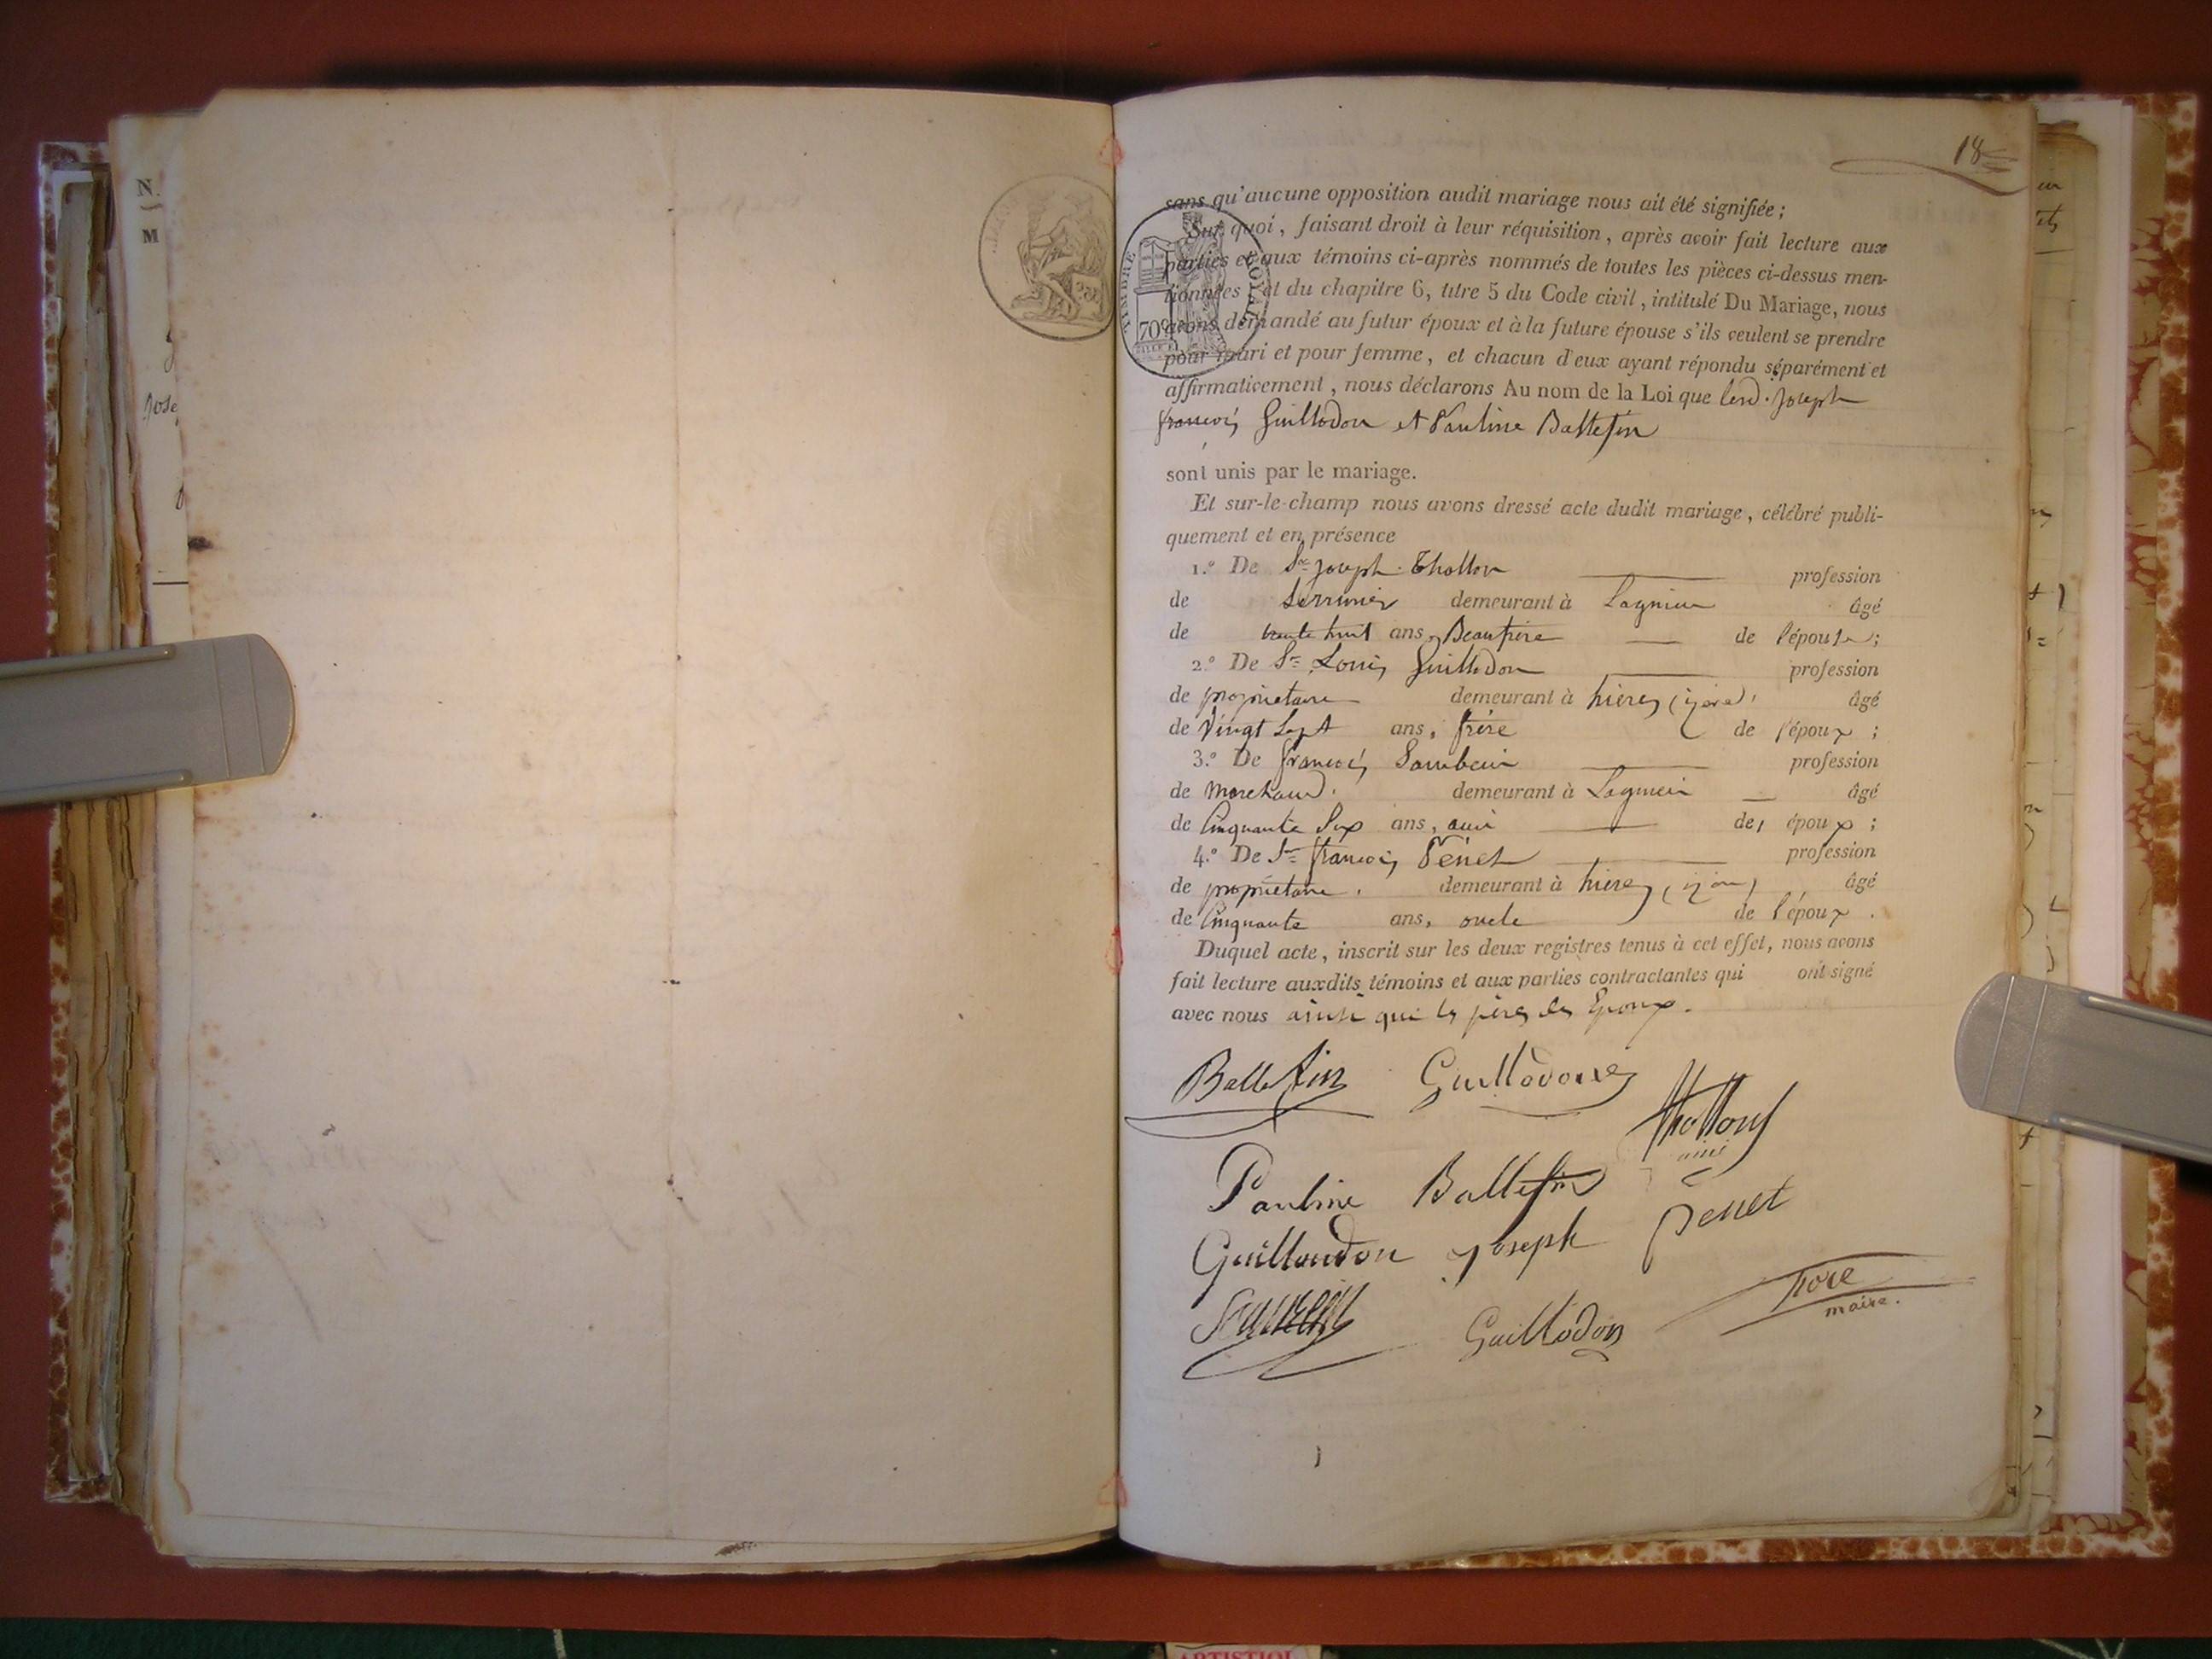 N.
M
Jose
18
sans qu'aucune opposition audit mariage nous ait été signifiée ;
Sur quoi, faisant droit à leur réquisition, après avoir fait lecture aux
parties et aux témoins ci-après nommés de toutes les pièces ci-dessus men-
tionnées et du chapitre 6, titre 5 du Code civil, intitulé Du Mariage, nous
avons demandé au futur époux et à la future épouse s'ils veulent se prendre
pour mari et pour femme, et chacun d'eux ayant répondu séparément et
affirmativement, nous déclarons Au nom de la Loi que lesd. Joseph
francois Guillodon et Pauline Balletfin
sont unis par le mariage.
Et sur-le-champ nous avons dressé acte dudit mariage, célébré publi-
quement et en présence
1.º De Sr Joseph Thollon profession
de Serrurier demeurant à Lagnieu âgé
de trente huit ans, Beaufrère de l'épouse ;
2.º De Sr Louis Guillodon profession
de proprietaire demeurant à hieres (isère) âgé
de Vingt Sept ans, frère de l'époux ;
3.º De francois profession
de Marchand. demeurant à Lagnieu âgé
de Cinquante Six ans, ami de l'époux ;
4.º De Sr francois Penet profession
de propriétaire. demeurant à hieres (isère) âgé
de Cinquante ans, oncle de l'époux.
Duquel acte, inscrit sur les deux registres tenus à cet effet, nous avons
fait lecture auxdits témoins et aux parties contractantes qui ont signé
avec nous ainsi que les pères des Epoux.
TIMBRE ROYAL
70c
Guillodon
Thollon
Pauline
Penet
Guilloudon Joseph
maire.
Guillodon
ARTISTIQUE